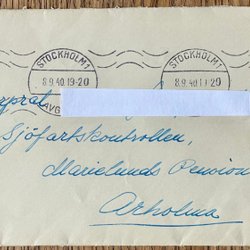 STOCKHOLM 1 STOCKHOLM 1
8.9.40.19-20 8.9.40.19-20
AVG
Sjöfartskontrollen,
Marielunds Pension
Arholma